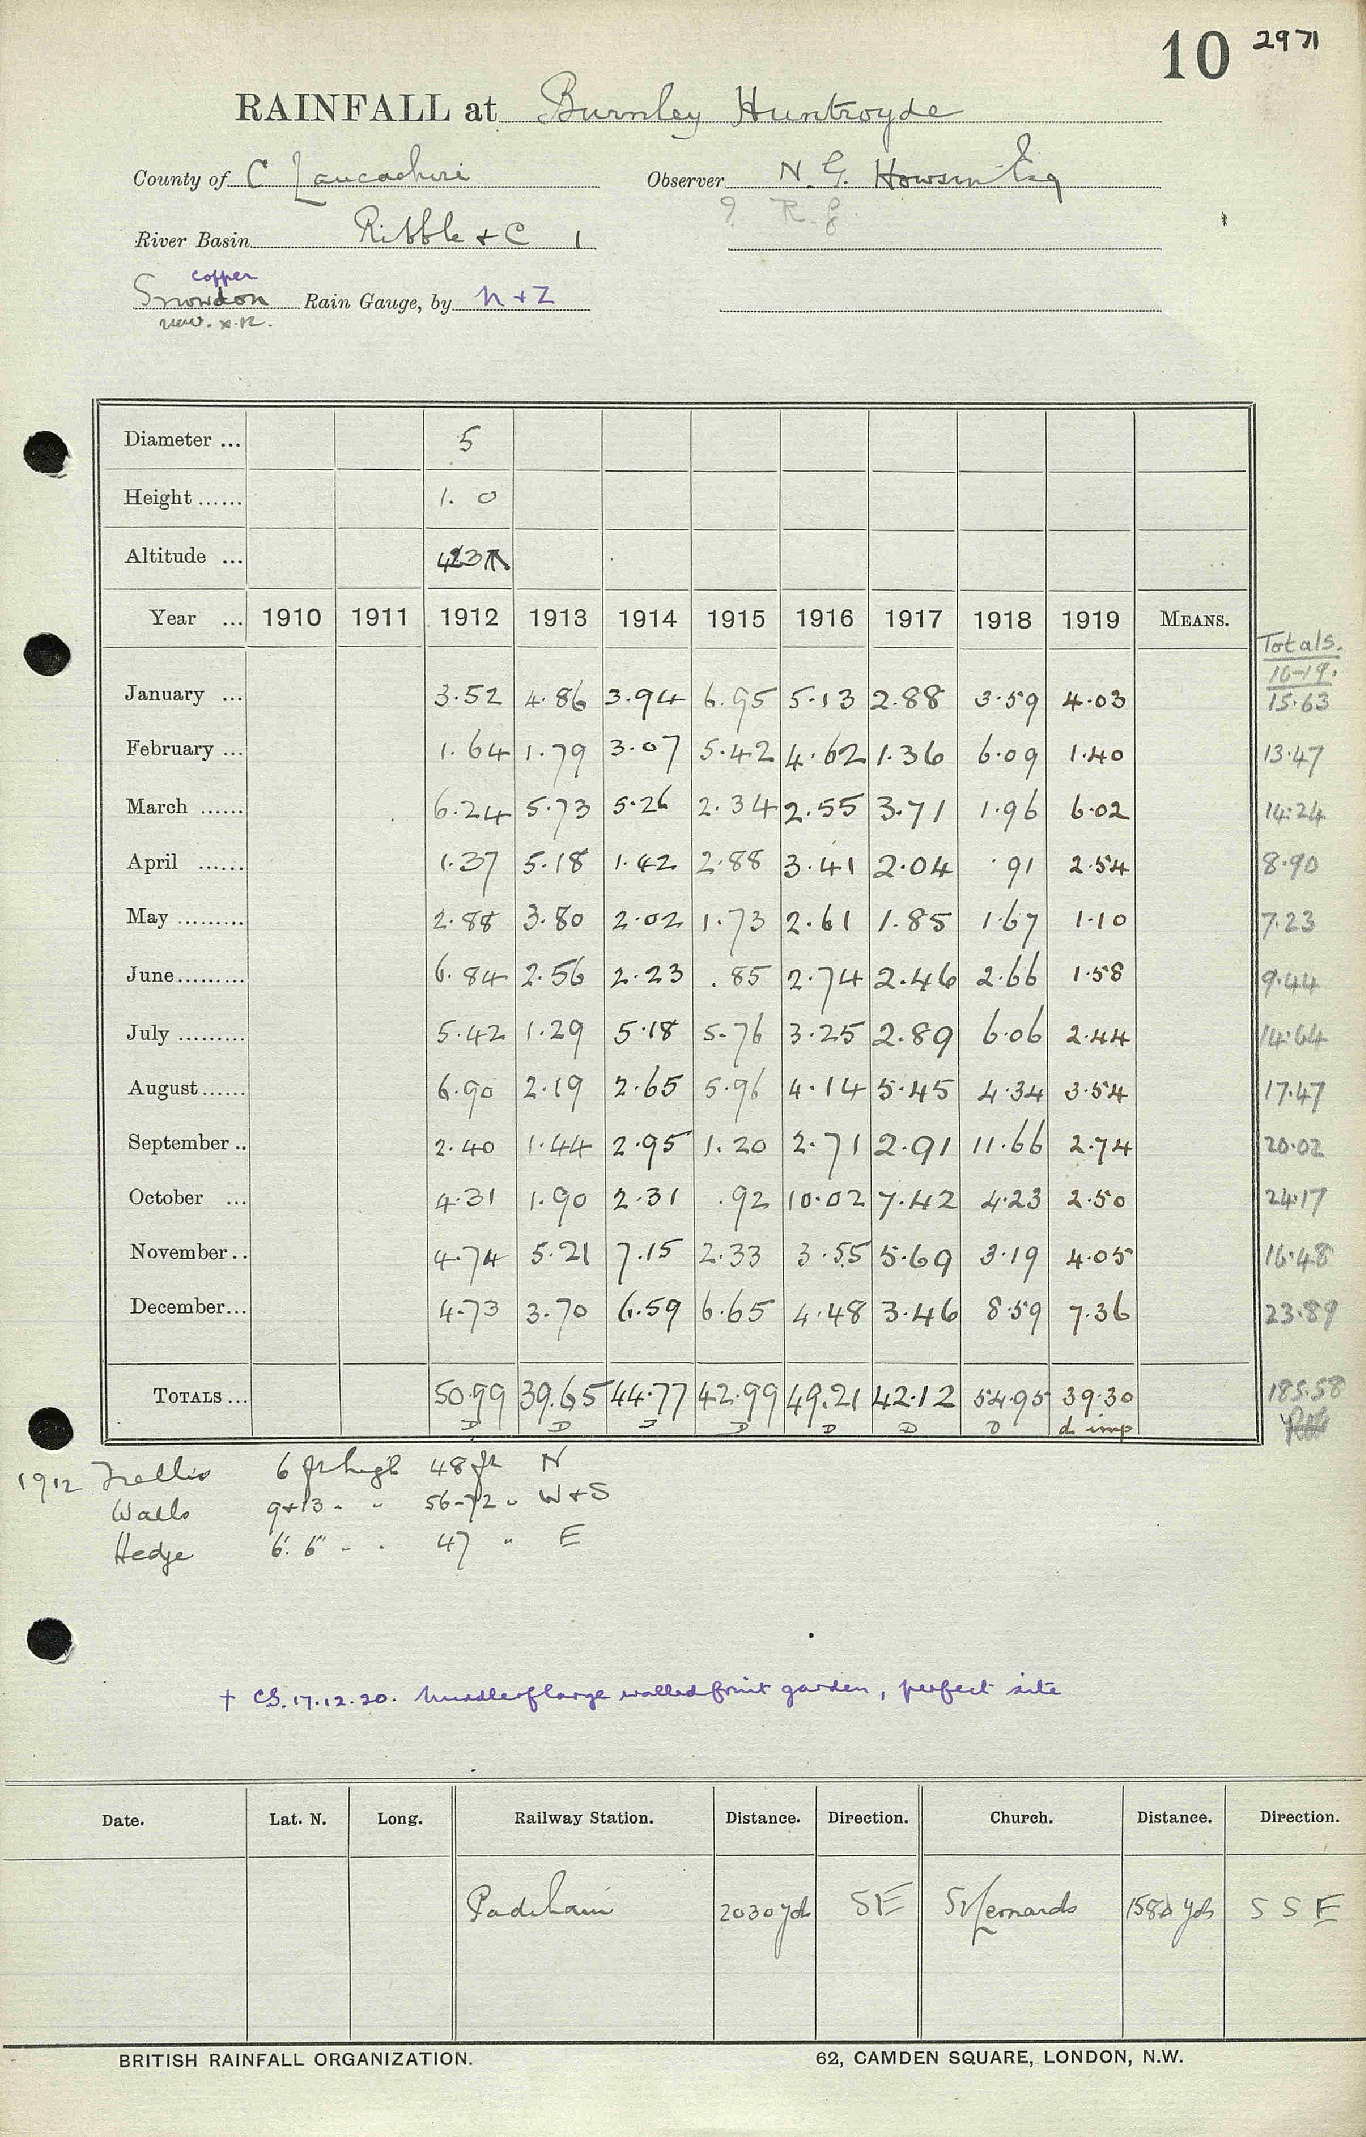 10 2971
RAINFALL at Burnley Huntroyde
County of C Lancashire Observer N. G. Howson Esq
? R. G
River Basin Ribble + C 1
copper
Snowdon Rain Gauge, by N + Z
new. x.12.
Diameter ... 5
Height ...... 1. 0
Altitude ...
Year ... 1910 1911 1912 1913 1914 1915 1916 1917 1918 1919 MEANS.
Totals.
16-19.
January ... 3.52 4.86 3.94 6.95 5.13 2.88 3.59 4.03 15.63
February ... 1.64 1.79 3.07 5.42 4.62 1.36 6.09 1.40 13.47
March ...... 6.24 5.73 5.26 2.34 2.55 3.71 1.96 6.02 14.24
April ...... 1.37 5.18 1.42 2.88 3.41 2.04 .91 2.54 8.90
May ......... 2.88 3.80 2.02 1.73 2.61 1.85 1.67 1.10 7.23
June......... 6.84 2.56 2.23 .85 2.74 2.46 2.66 1.58 9.44
July ......... 5.42 1.29 5.18 5.76 3.25 2.89 6.06 2.44 14.64
August...... 6.90 2.19 2.65 5.96 4.14 5.45 4.34 3.54 17.47
September .. 2.40 1.44 2.95 1.20 2.71 2.91 11.66 2.74 20.02
October ... 4.31 1.90 2.31 .92 10.02 7.42 4.23 2.50 24.17
November .. 4.74 5.21 7.15 2.33 3.55 5.69 3.19 4.05 16.48
December... 4.73 3.70 6.59 6.65 4.48 3.46 8.59 7.36 23.89
TOTALS ... 50.99 39.65 44.77 42.99 49.21 42.12 54.95 39.30 185.58
D D D D D D D d. imp
1912 Trellis 6 ft high 48 ft N
Walls 9+13 - " 56-72 " W + S
Hedge 6'. 6" - . 47 " E
+ CS. 17.12.20. Middle of large walled fruit garden, perfect site
Date. Lat. N. Long. Railway Station. Distance. Direction. Church. Distance. Direction.
Padiham 2030 yds SE St Leonards 1580 yds S S E
BRITISH RAINFALL ORGANIZATION. 62, CAMDEN SQUARE, LONDON, N.W.